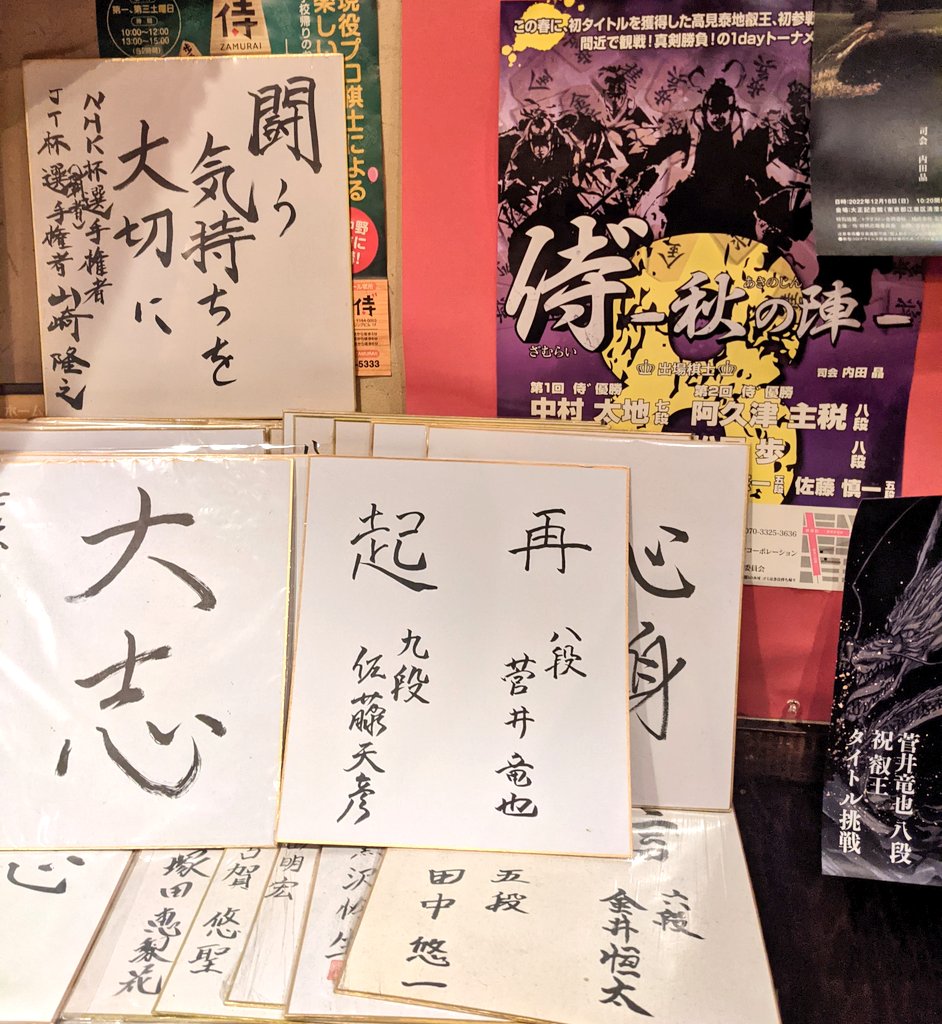 第一、第三土曜日
10:00〜12:00
13:00〜15:00
侍
ZAMURAI
現役プロ棋士による
楽しい
闘う
気持ちを
大切に
NHK杯選手権者
JT杯選手権者 山崎隆之
侍
5333
この春に、初タイトルを獲得した高見泰地叡王、初参戦
間近で観戦!真剣勝負!の1dayトーナメ
侍゛
ざむらい
ー秋の陣ー
あきのじん
出場棋士
司会 内田 晶
第1回 侍゛優勝
中村 太地 七段
第2回 侍゛優勝
阿久津 主税 八段
歩 八段
一 五段
佐藤 慎一 五段
070-3325-3636
コーポレーション
委員会
司会 内田晶
日時:2022年12月18日(日) 10:20開
大志
再
起
八段
菅井竜也
九段
佐藤天彦
心身
菅井竜也 八段
祝 叡王
タイトル挑戦
心
塚田恵梨花
古賀悠聖
明宏
黒沢怜生
五段
田中悠一
六段
金井恒太